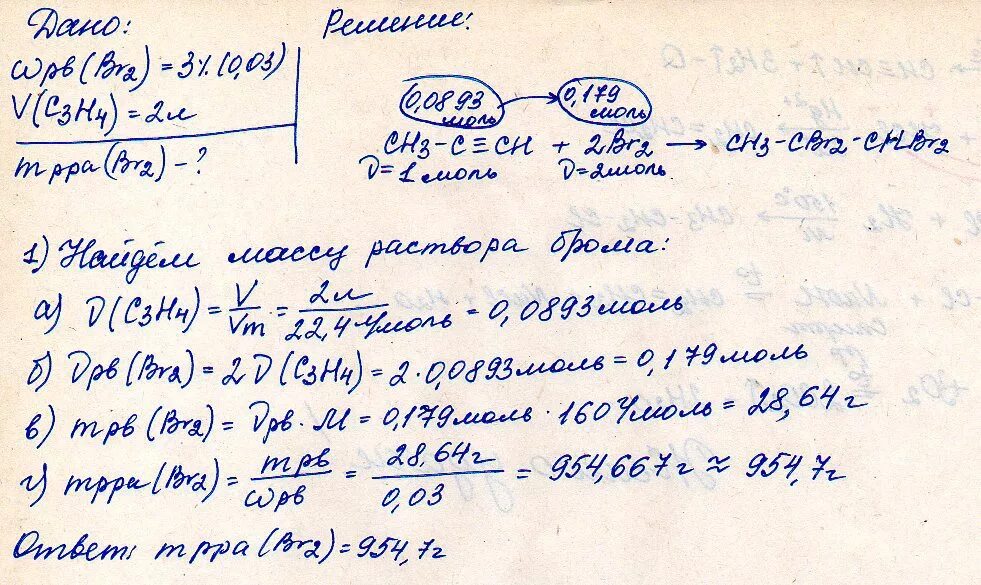 Дано:
Решение:
ωрв(Br2) = 3% (0,03)
V(C3H4) = 2л
mрра(Br2) - ?
0,0893 моль → 0,179 моль
CH3-C≡CH + 2Br2 → CH3-CBr2-CHBr2
ν=1моль ν=2моль
1) Найдём массу раствора брома:
а) ν(C3H4) = V/Vm = 2л/22,4 л/моль = 0,0893моль
б) νрв(Br2) = 2ν(C3H4) = 2·0,0893моль = 0,179моль
в) mрв(Br2) = νрв·M = 0,179моль · 160 г/моль = 28,64г
г) mрра(Br2) = mрв/ωрв = 28,64г/0,03 = 954,667г ≈ 954,7г
Ответ: mрра(Br2) = 954,7г